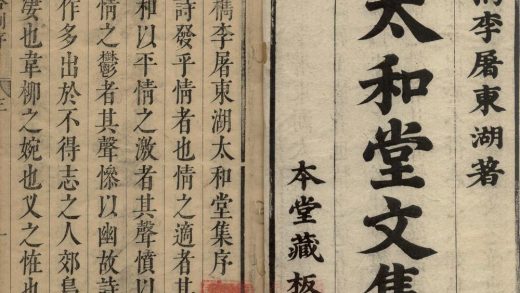 檇李屠東湖著
太和堂文集
本堂藏板
檇李屠東湖太和堂集序
詩發乎情者也情之適者其
和以平情之激者其聲憤以
情之鬱者其聲慘以幽故詩
作多出於不得志之人郊島
淒也韋柳之婉也又之恠也